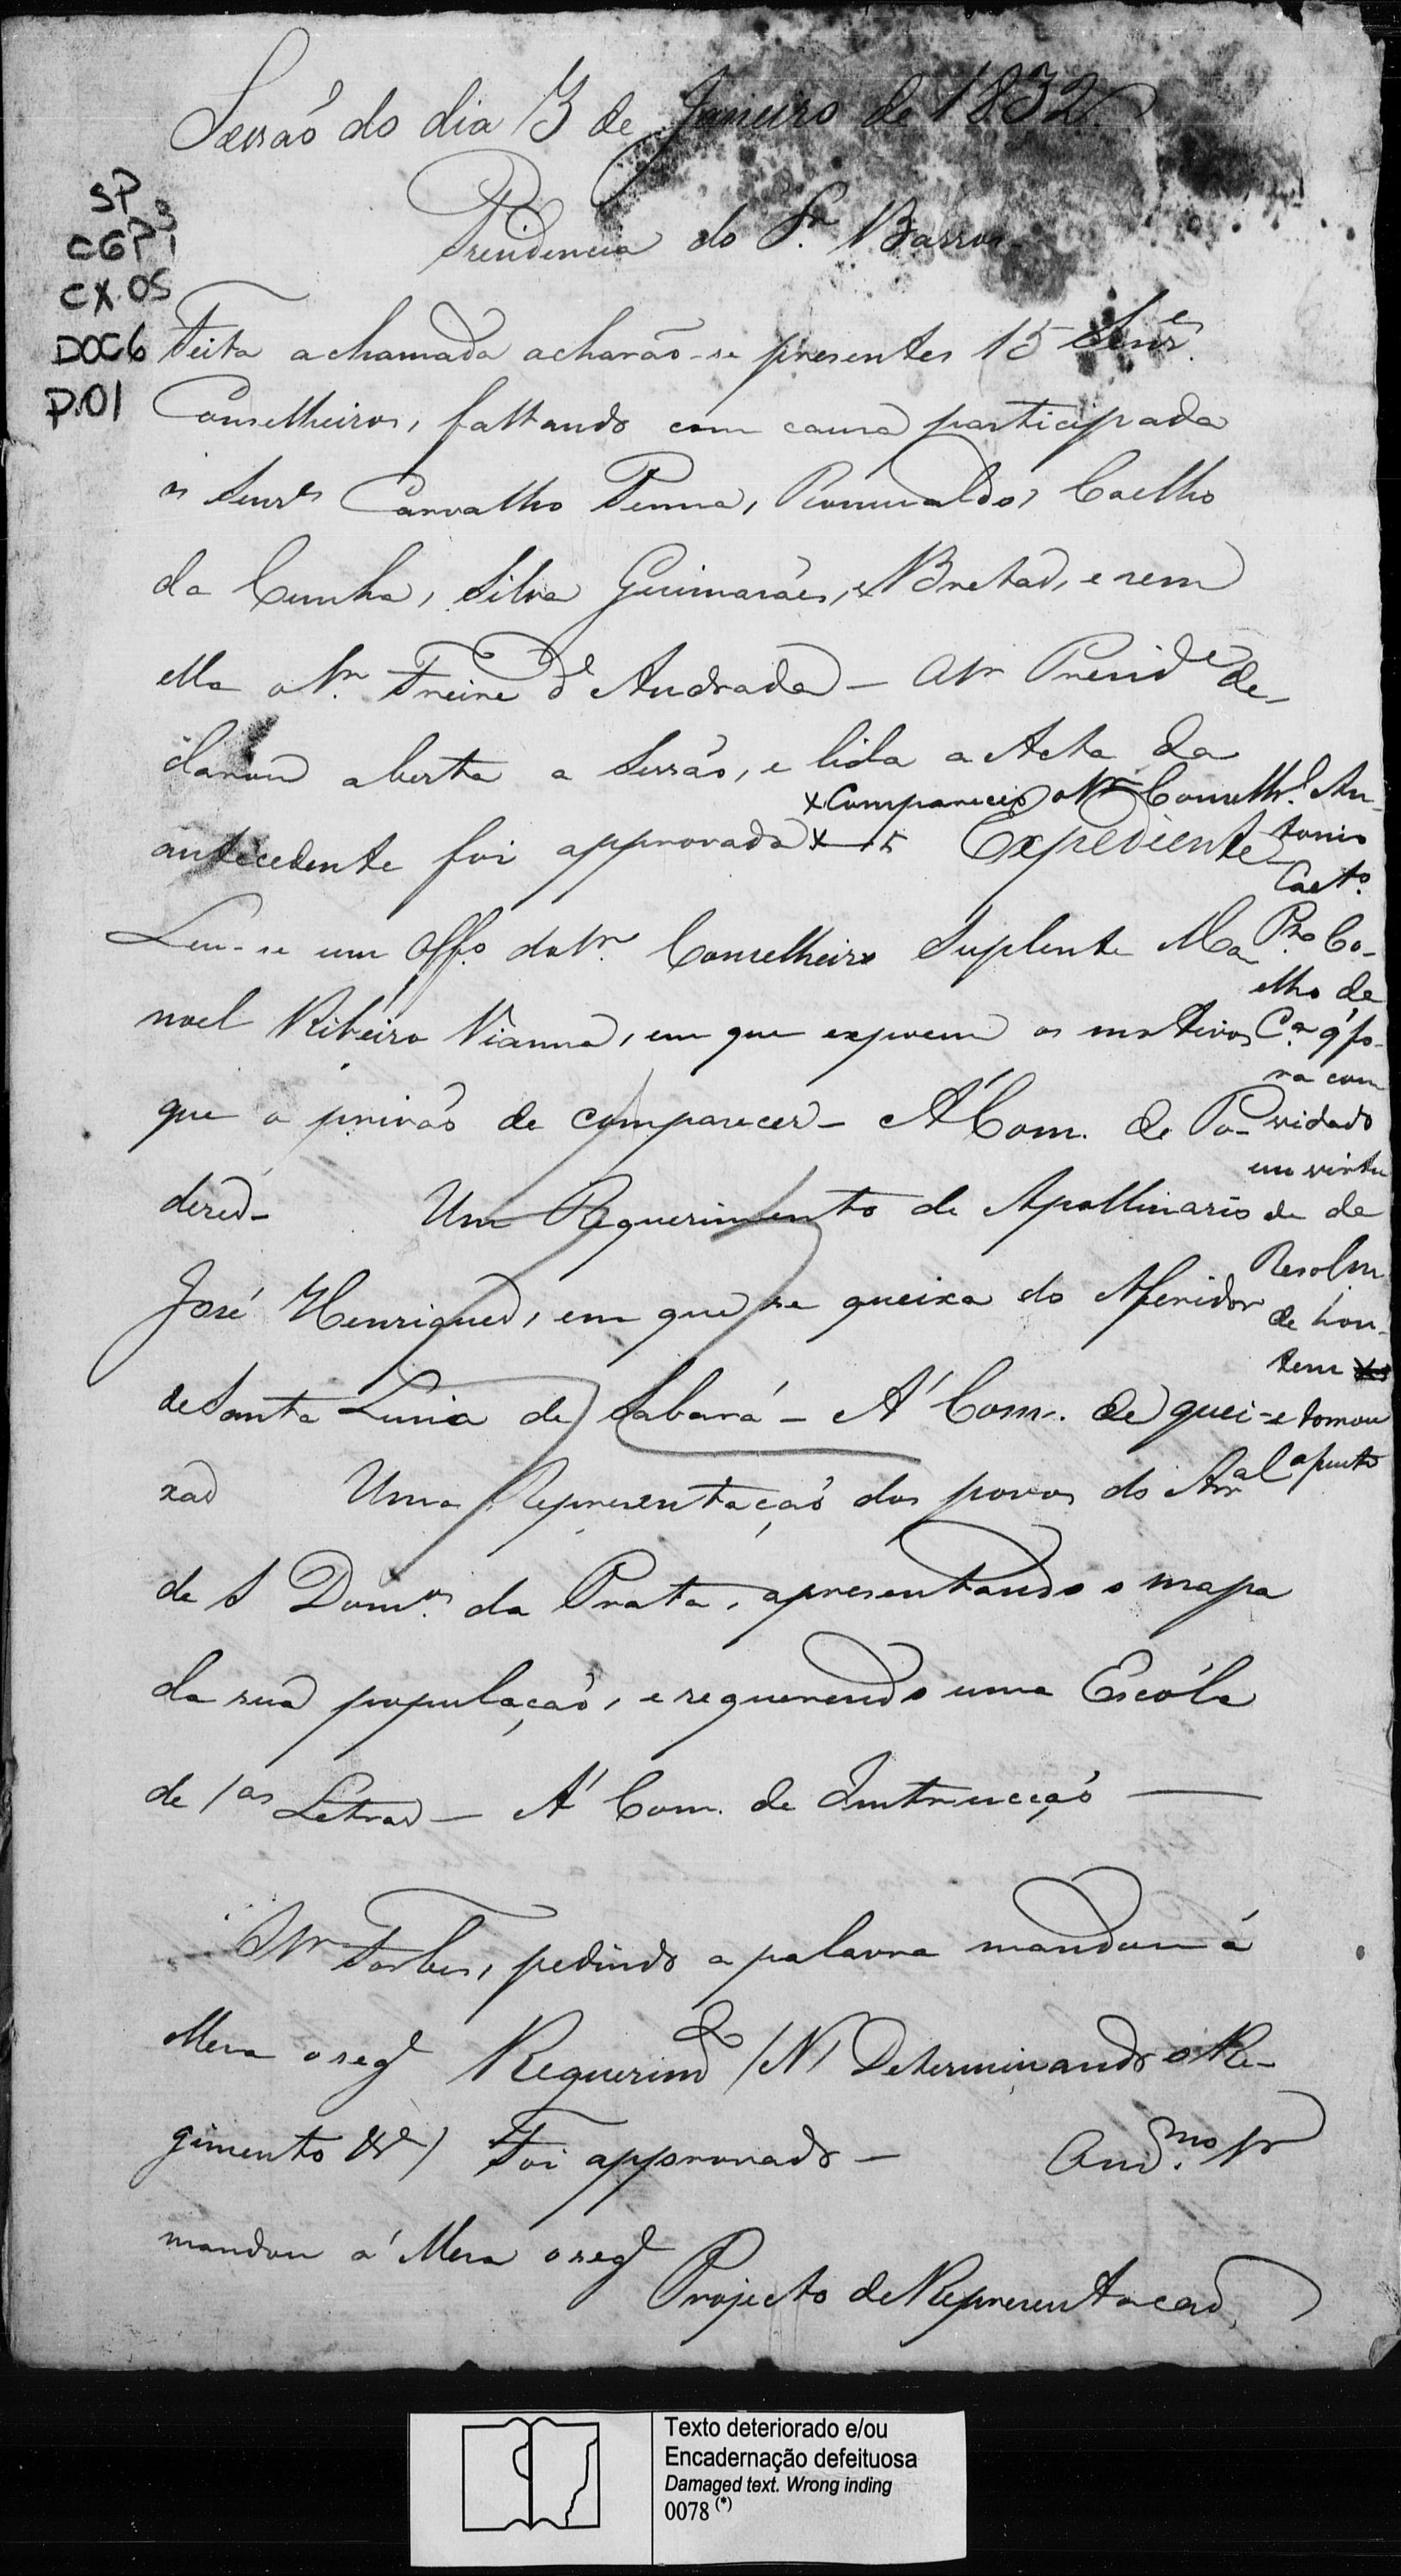 Sessaõ do dia 3 de Janeiro de 1832.
Presidencia do Sr. Barros
SP
CGP1 3
CX.05
DOC6
P.01
Feita a chamada acharão-se presentes 15 Senres.
Conselheiros, faltando com causa participada
os Senres Carvalho Penna, Romualdo, Coelho
da Cunha, Silva Guimarães, e Bretas, e sem
ella o Sr. Freire d'Andrada — O Sr Preside de-
clarou aberta a Sessão, e lida a Acta da
antecedente foi approvada x — Expediente
x Compareceo o Sr Conselhro. An-
tonio
Caeto.
Pto Co-
elho de
Ca. q' fo-
ra con
vidado
em virtu
de da
Resolm
de hon-
tem
e tomou
assento
Leu-se um Offo. do Sr. Conselheiro Suplente Ma-
noel Ribeiro Vianna, em que expoem os motivos
que o privão de comparecer — Á Com. de Po-
deres — Um Requerimento de Apollinario
José Henriques, em que se queixa do Aferidor
de Santa Luzia de Sabará — Á Com. de quei-
xas Uma Representação dos povos do Arral
de S Domos. da Prata, apresentando o mapa
da sua população, e requerendo uma Escóla
de 1as Letras — Á Com. de Instrucção —
O Sr Forbes, pedindo a palavra mandou á
Mesa o sege Requerimto (N1 Determinando o Re-
gimento &a) Foi approvado — O mesmo Sr
mandou á Mesa o sege
Projecto de Representacaõ
Texto deteriorado e/ou
Encadernação defeituosa
Damaged text. Wrong inding
0078 (*)